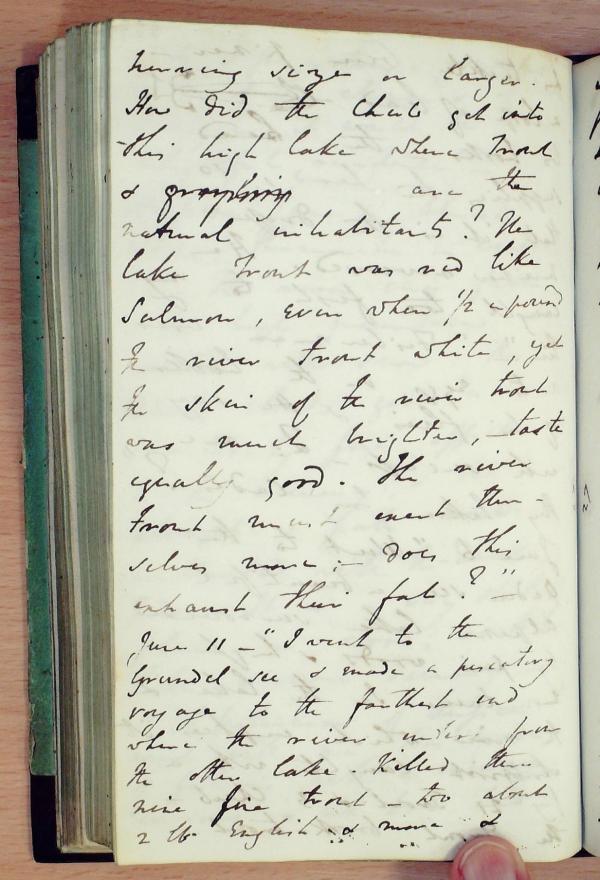 herring size or larger.
How did the Charb get into
this high lake where Trout
& are the
natural inhabitants? The
lake Trout was red like
Salmon, even when 1/2 a pound
The river trout white, yet
the skin of the river trout
was much brighter, - taste
equally good. The river
trout must exert them-
selves more; - does this
exhaust their fat?" -
June 11 - "I went to the
Grundel see & made a piscatory
voyage to the farthest end
where the river enters from
the other lake. Killed there
nine fine trout - two about
2 lb English & more &